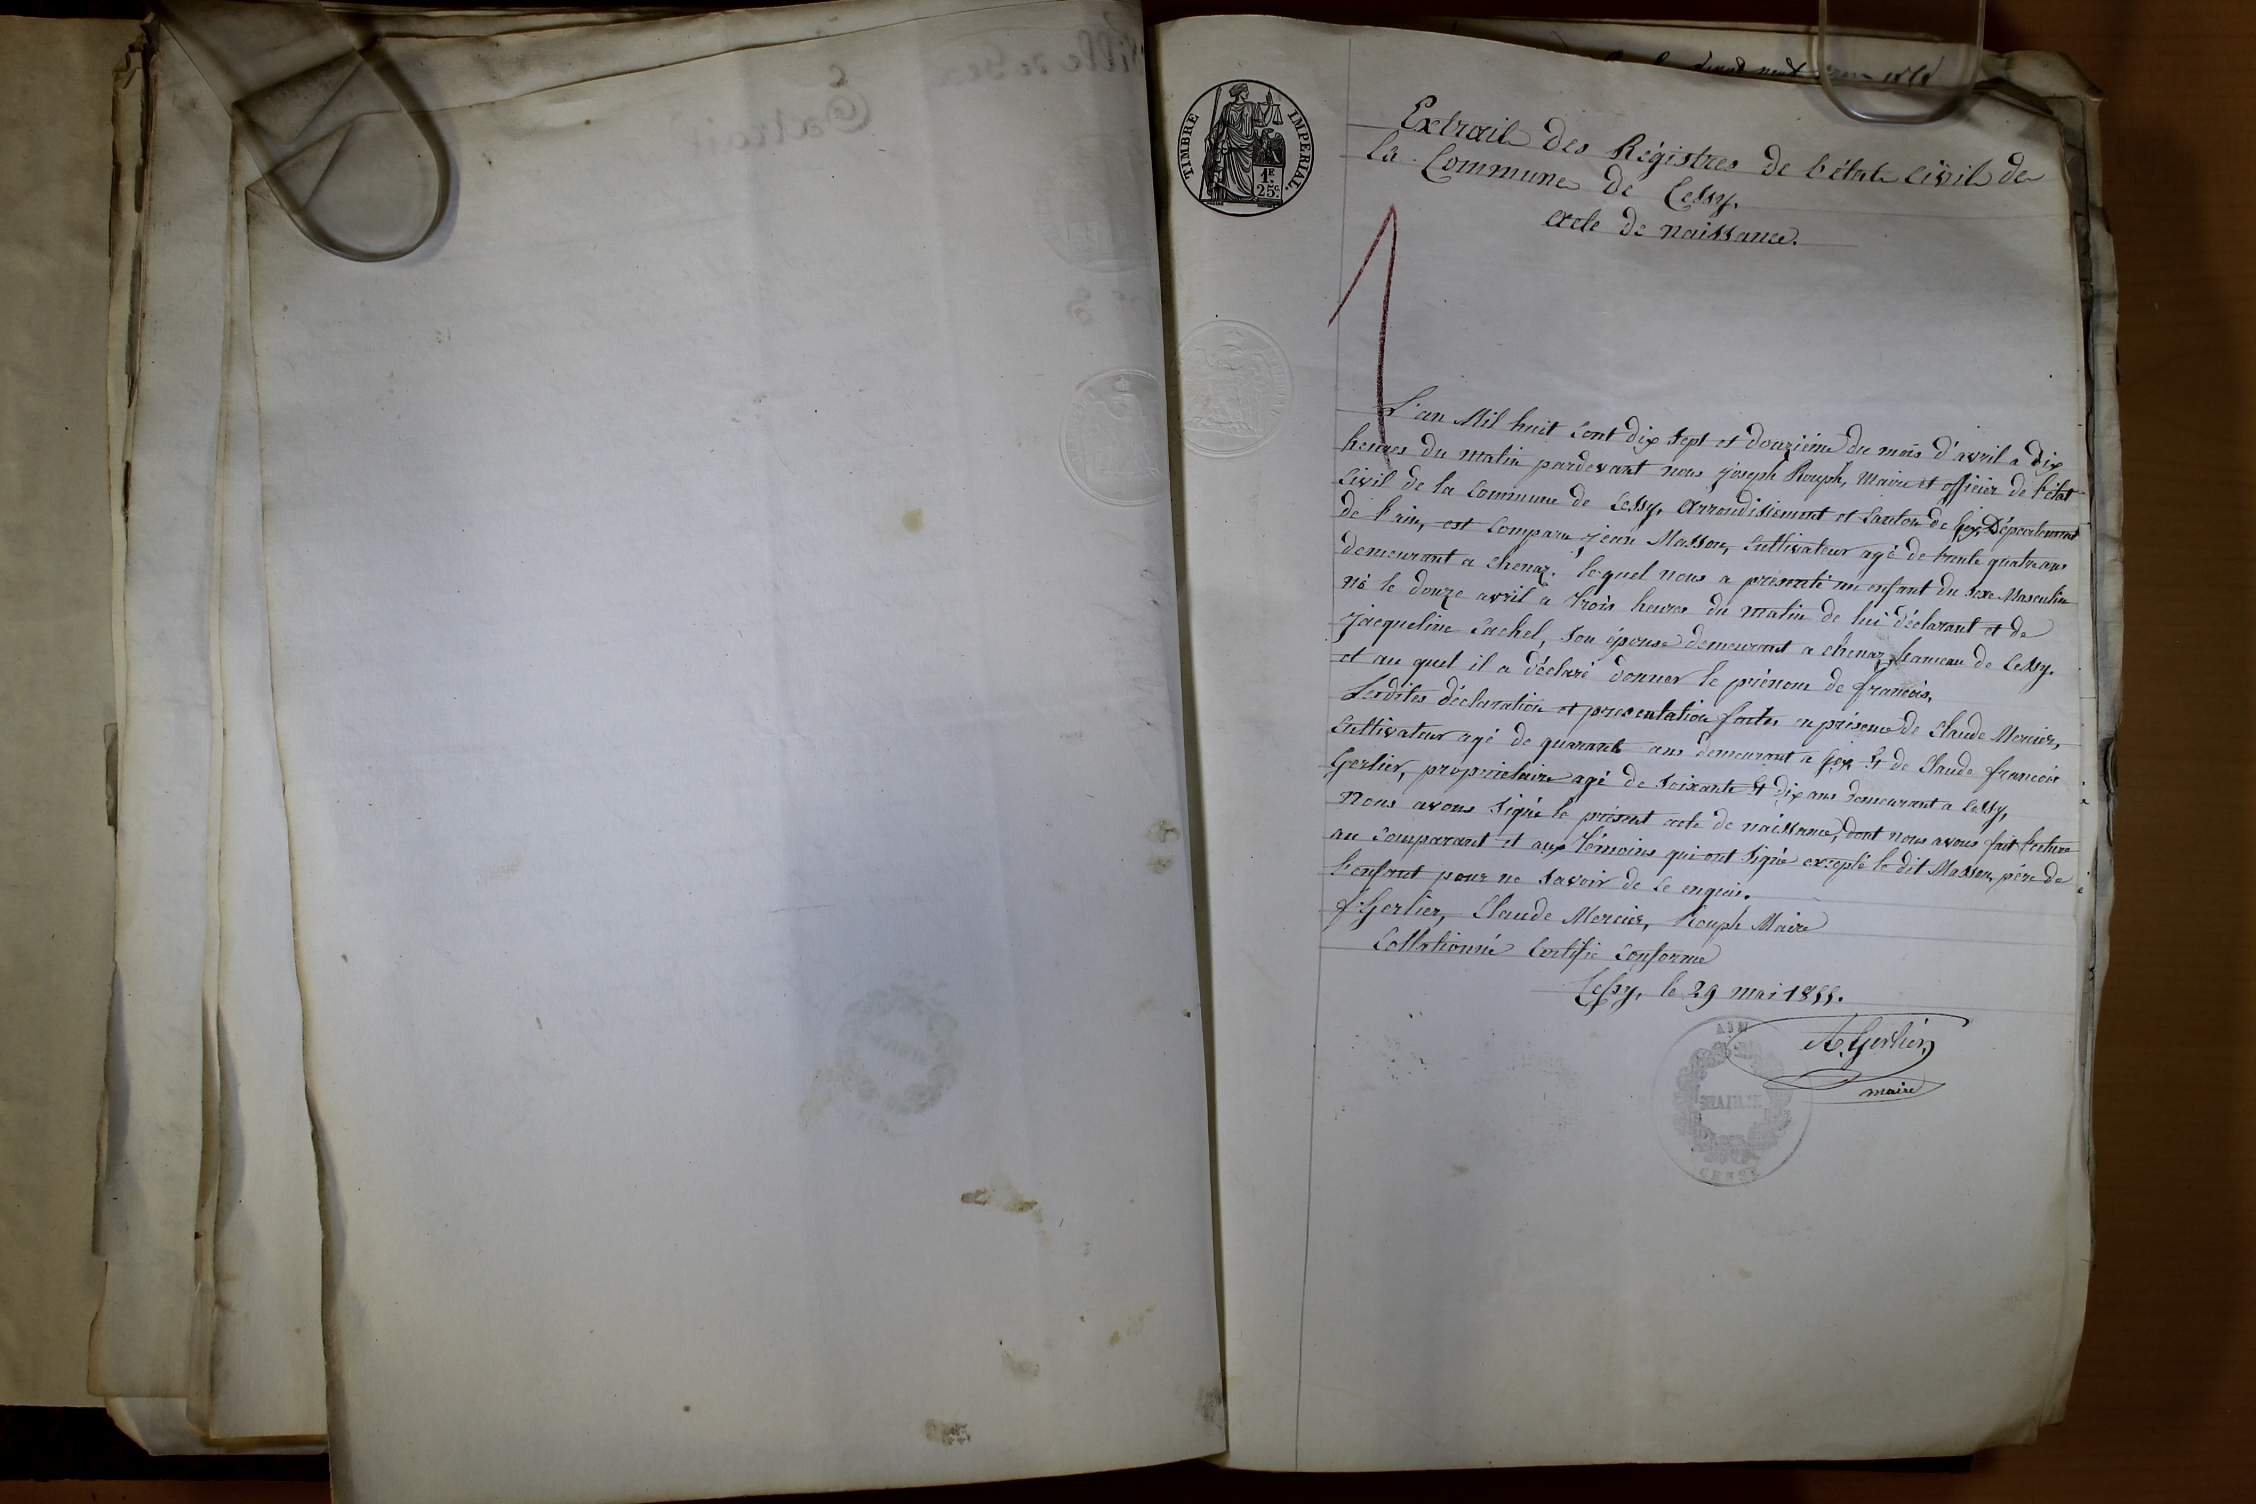 TIMBRE IMPERIAL.
1F
25c.
Extrait des Régistres de l'état Civil de
la Commune de Cessy.
acte de naissance.
1
L'an Mil huit Cent dix sept et douzième du mois d'avril a dix
heures du matin pardevant nous joseph Rouph, Maire et officier de l'état
Civil de la Commune de Cessy, arrondissement et Canton de Gex, Département
de l'ain, est Comparu jean Masson, Cultivateur agé de trente quatre ans
demeurant a Chenaz. lequel nous a présenté un enfant du sexe Masculin
né le douze avril a trois heures du matin de lui déclarant et de
jacqueline Sachel, son épouse demeurant a Chenaz, hameau de Cessy.
et au quel il a déclaré donner le prénom de francois.
Lesdites déclaration et presentation faites en présence de Claude Mercier,
Cultivateur agé de quarante ans demeurant a Gex et de Claude francois
Gerlier, propriétaire agé de soixante et dix ans demeurant a Cessy,
Nous avons signé le présent acte de naissance, dont nous avons fait lecture
au Comparant et aux témoins qui ont signé excepté le dit Masson, père de
l'enfant pour ne savoir de ce enquis.
f. Gerlier, Claude Mercier, Rouph Maire
Collationné Certifié Conforme
Cessy, le 29 mai 1855.
A. Gerlier
maire
MAIRIE